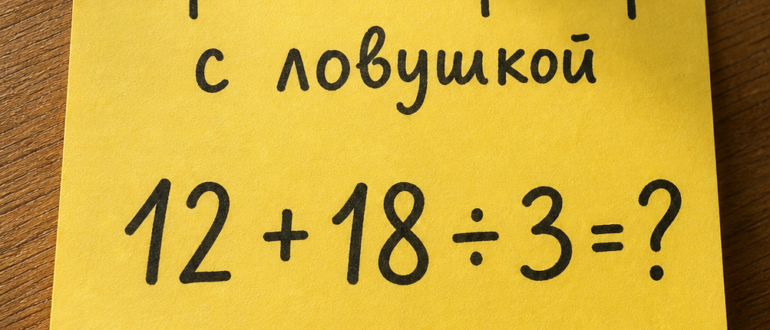 с ловушкой
12 + 18 ÷ 3 = ?